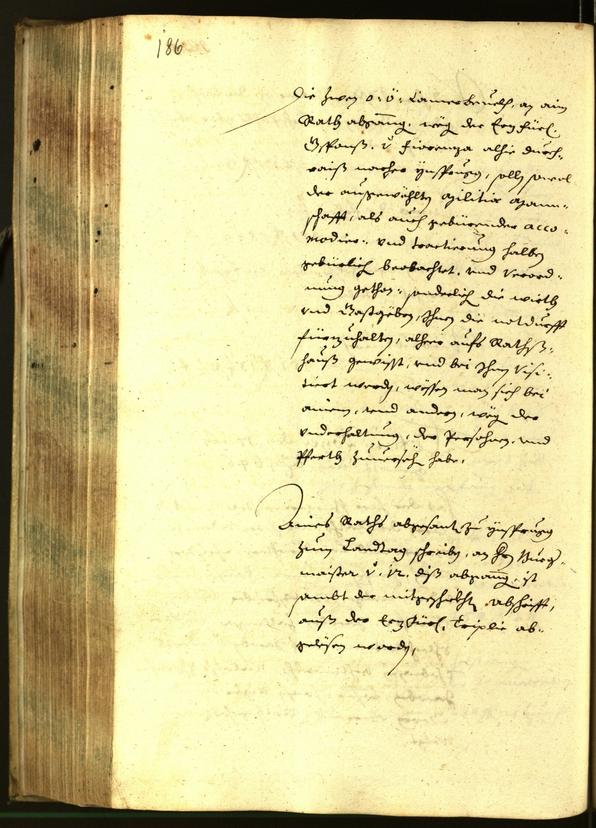 186
Die zwen o: ö: Camer beuelch, an ain
Rath abgang. weg der Erzfürl.
v. Fiorenza alhie durch-
raiß nacher Ynsprugg, solln sowol
der außgewöhlten militie mann-
schafft, als auch gebürender acco-
modier- und tractierung halben
gebürlich beobachtet. und verord-
nung gethon: sonderlich die wierth
und Gastgeben, Ihnen die notdurfft
fürzuhalten, alher aufs Rathß-
hauß gewisst, und bei Ihnen visi-
tiert werden, wissen man sich bei
ainem, und andern, weg der
underhaltung, der Persohnen, und
Pferth zuuersehen habe.
Aines Raths abgesanten zu Ynsprugg
zum Landtag schreiben, an Hrn Burg-
maister v. 12. diß abgang. ist
sambt der mitgeschickten abschrifft,
auß der Erzfürl. Triplic ab-
gelesen worden,